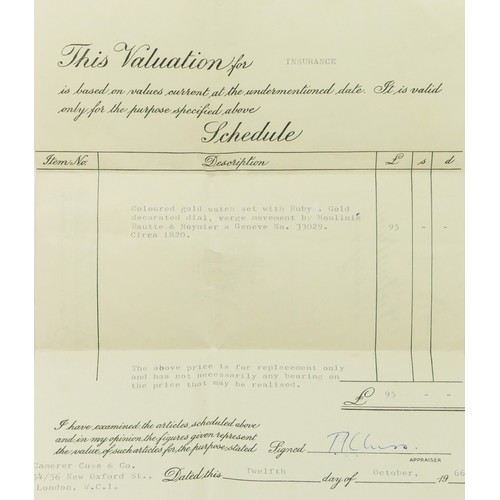 This Valuation for INSURANCE
is based on values current at the undermentioned date. It is valid
only for the purpose specified above
Schedule
Item No. Description £ s d
Coloured gold watch set with Ruby & Gold
decorated dial, verge movement by Moulinie
Bautte & Moynier a Geneve No. 33029. 95 - -
Circa 1820.
The above price is for replacement only
and has not necessarily any bearing on
the price that may be realised.
£ 95 - -
I have examined the articles, scheduled above
and in my opinion the figures given represent
the value of such articles for the purpose stated Signed
APPRAISER
Camerer Cuss & Co.
54/56 New Oxford St., Dated this Twelfth day of October, 19 66
London, W.C.1.